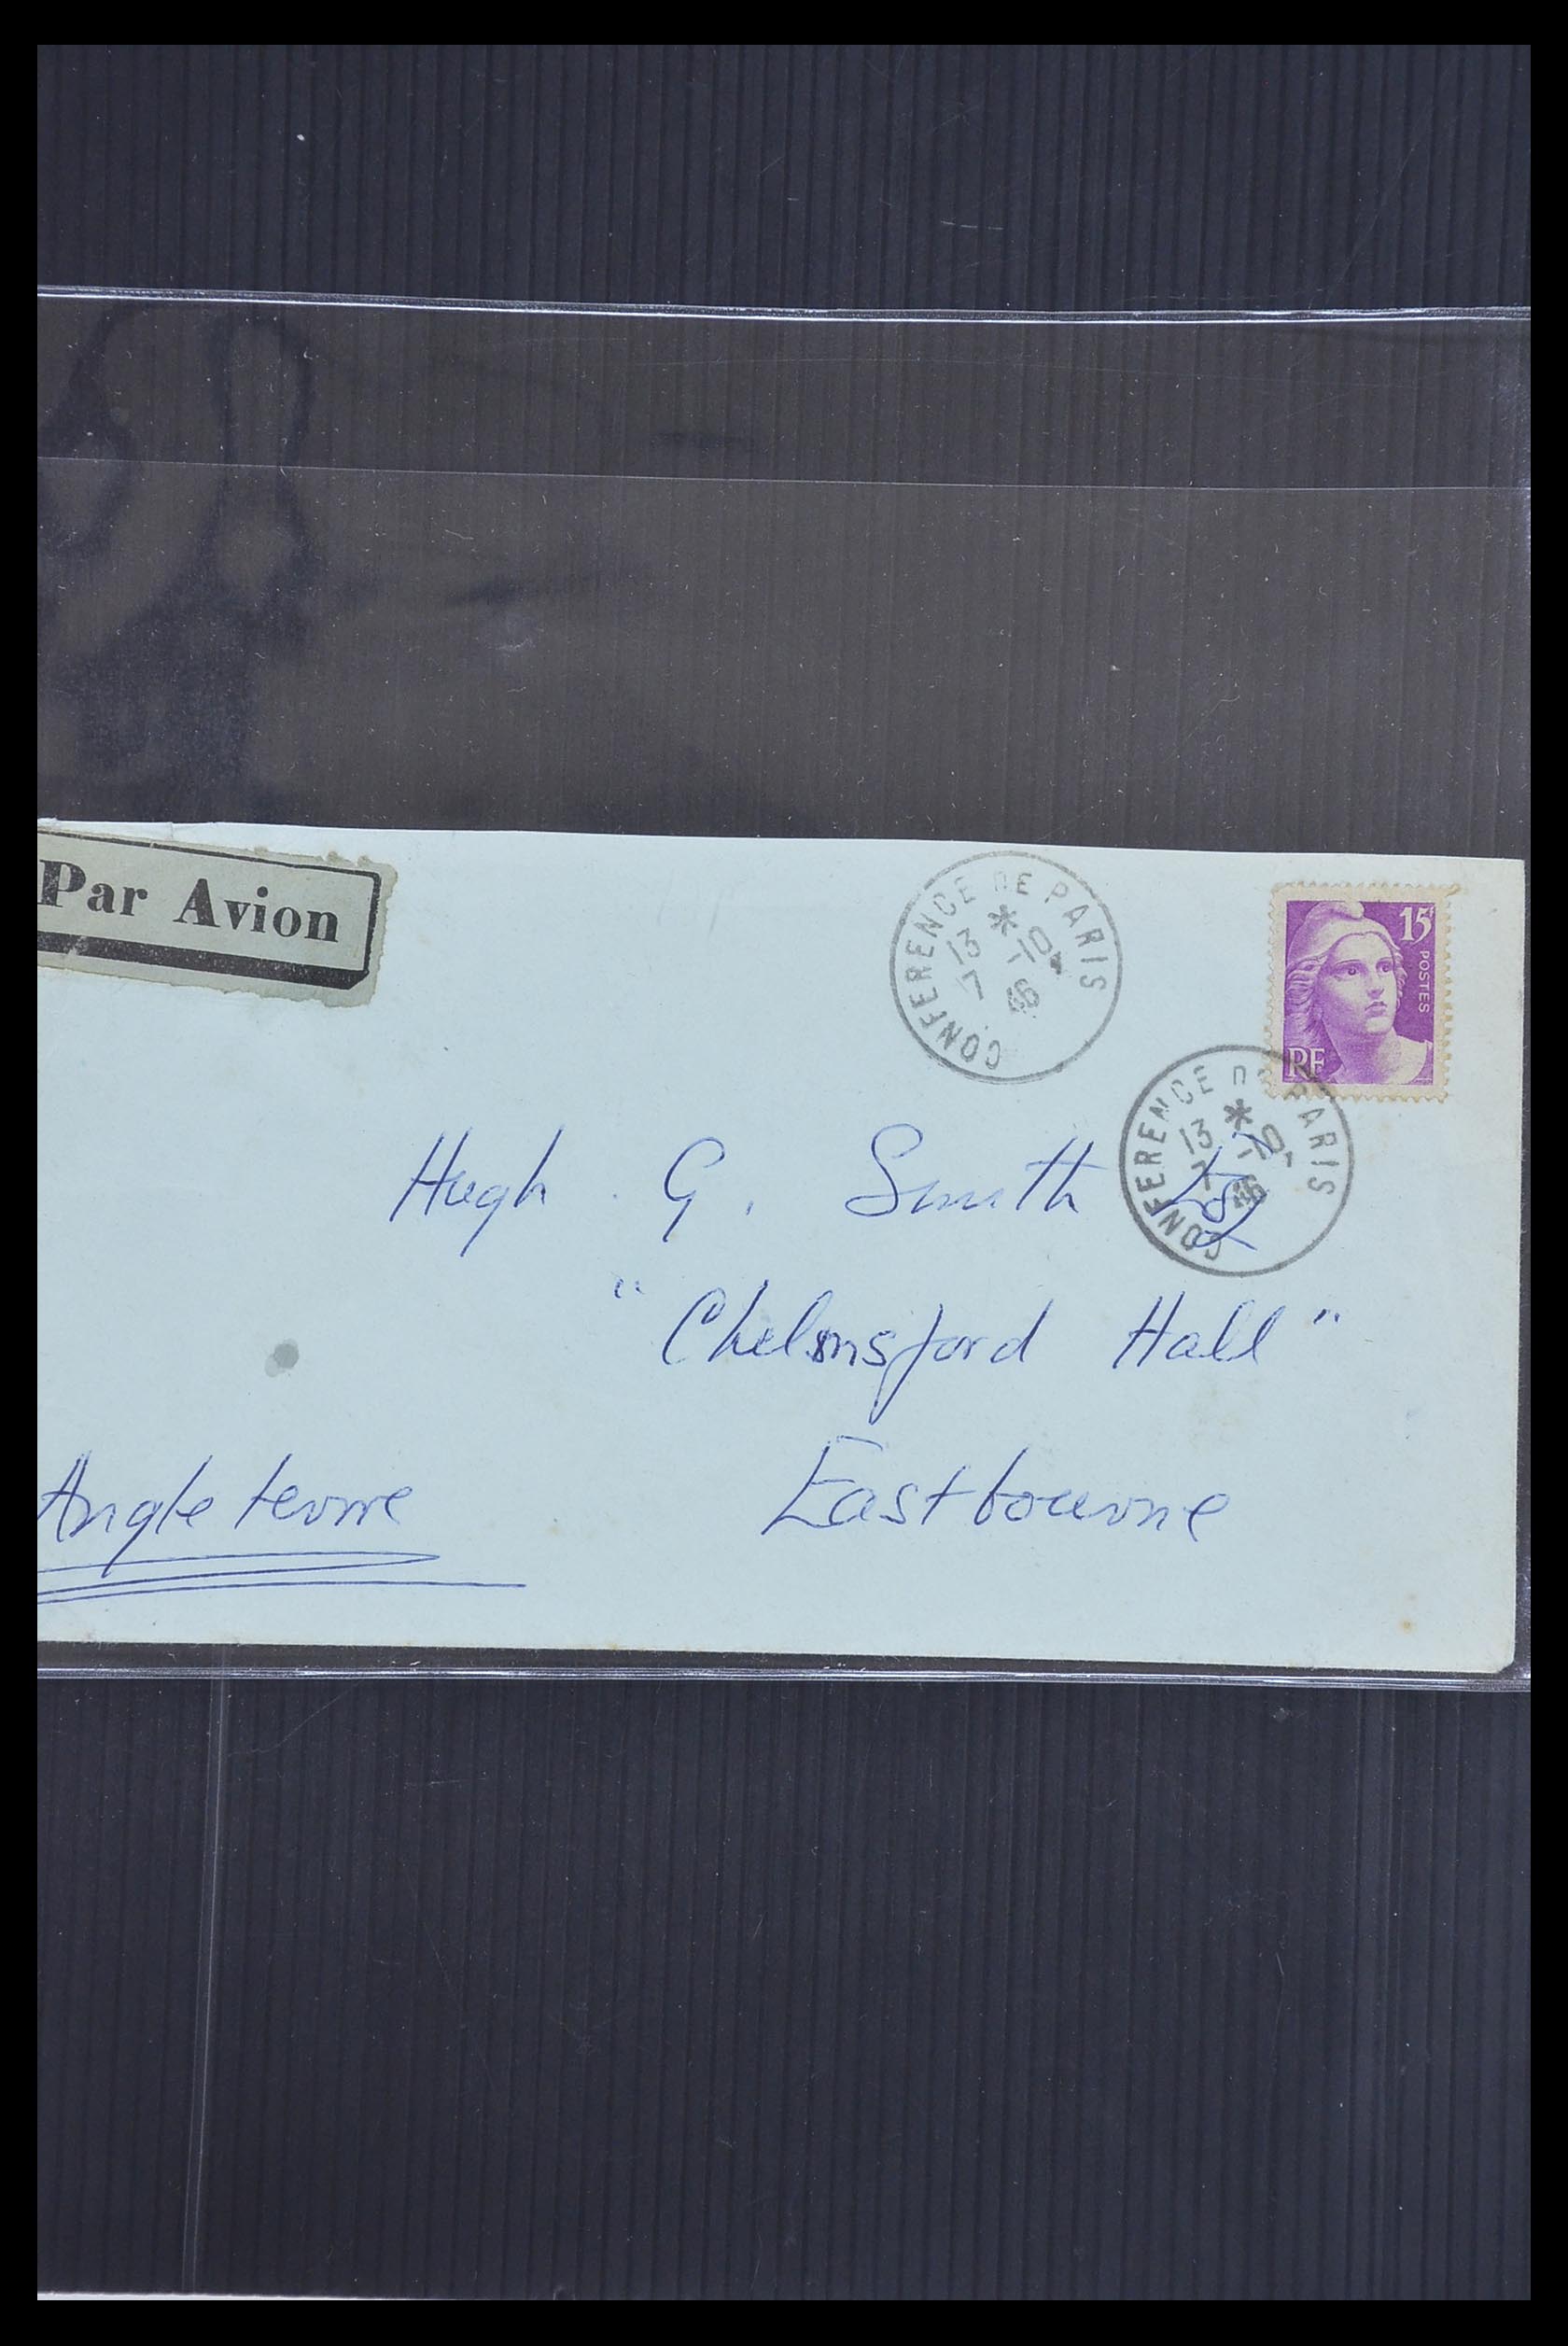 Par Avion
CONFERENCE DE PARIS
13 *
7 -10
46
15F
POSTES
RF
CONFERENCE DE PARIS
13 *
7 -10
46
Hugh G. Smith Esq
"Chelmsford Hall"
Eastbourne
Angleterre